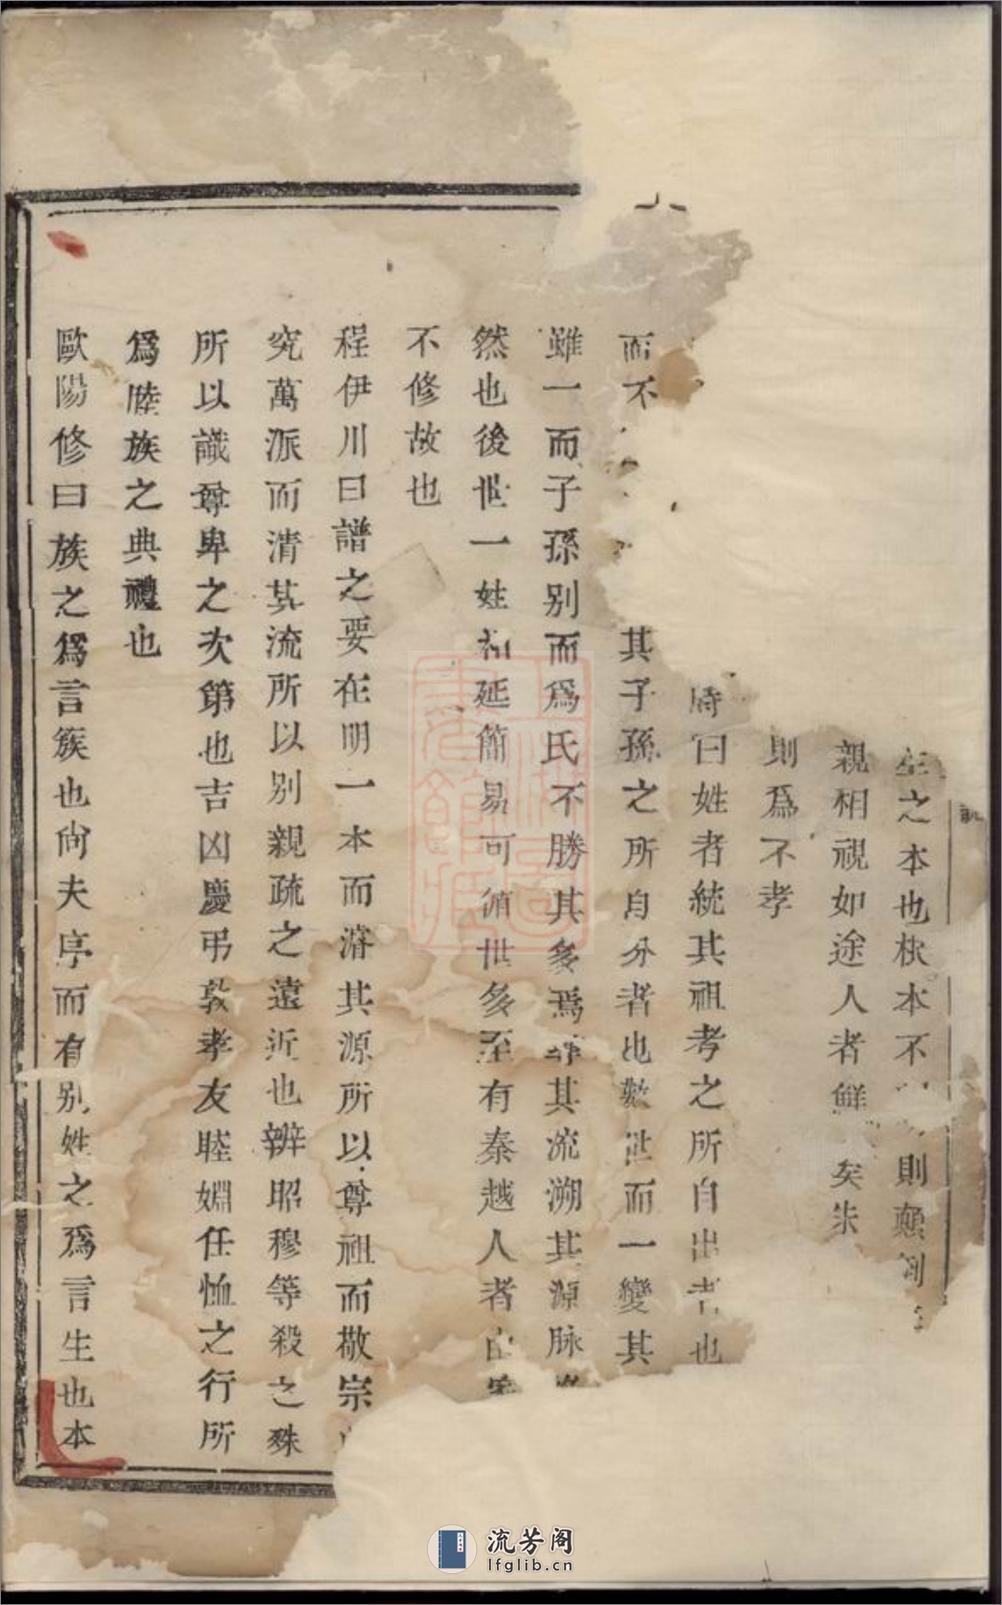 之本也枝本不則顛
親相視如途人者鮮矣朱
則為不孝
曰姓者統其祖考之所自出者也
而不其子孫之所自分者也數世而一變其
雖一而子孫别而爲氏不勝其多焉其流溯其源脉
然也後世一姓相延簡易可循世多至有秦越人者由
不修故也
程伊川曰譜之要在明一本而濬其源所以尊祖而敬宗
究萬派而清其流所以别親疏之遠近也辨昭穆等殺之殊
所以識尊卑之次第也吉凶慶弔敦孝友睦婣任恤之行所
爲睦族之典禮也
歐陽修曰族之爲言簇也尙夫序而有别姓之爲言生也本
流芳阁
lfglib.cn